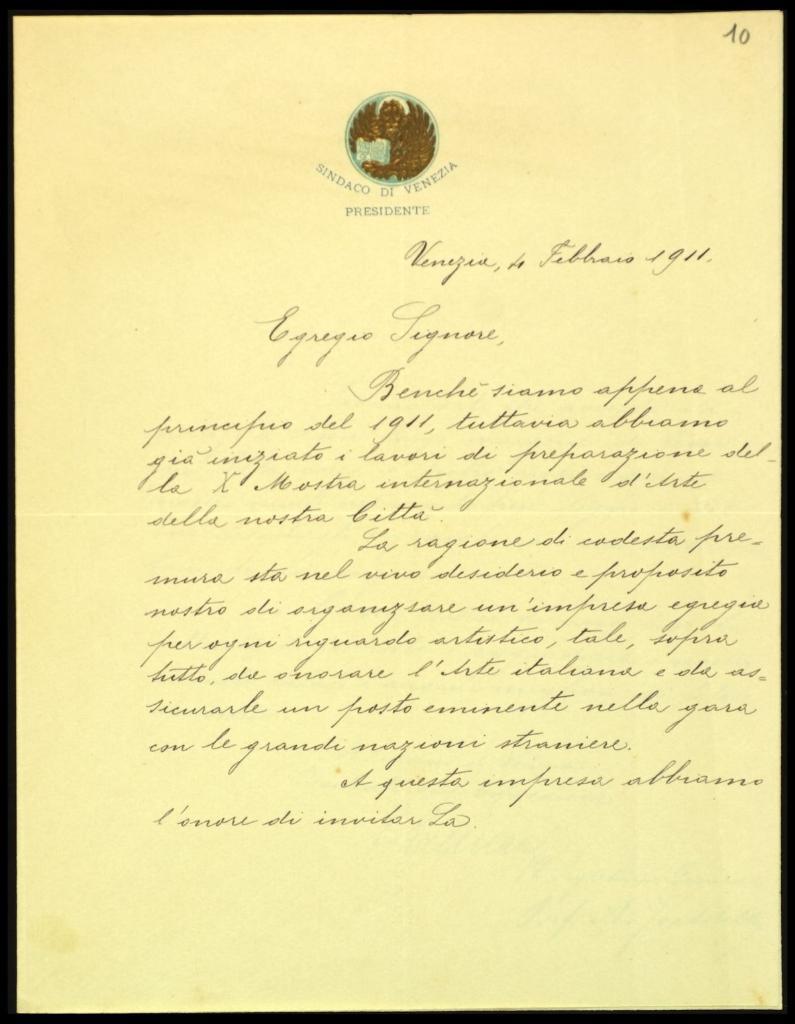 10
SINDACO DI VENEZIA
PRESIDENTE
Venezia, 4 Febbraio 1911.
Egregio Signore,
Benchè siamo appena al
principio del 1911, tuttavia abbiamo
già iniziato i lavori di preparazione del-
la X Mostra internazionale d'Arte
della nostra Città.
La ragione di codesta pre=
mura sta nel vivo desiderio e proposito
nostro di organizzare un'impresa egregia
per ogni riguardo artistico, tale, sopra
tutto, da onorare l'Arte italiana e da as=
sicurarle un posto eminente nella gara
con le grandi nazioni straniere.
A questa impresa abbiamo
l'onore di invitar La.